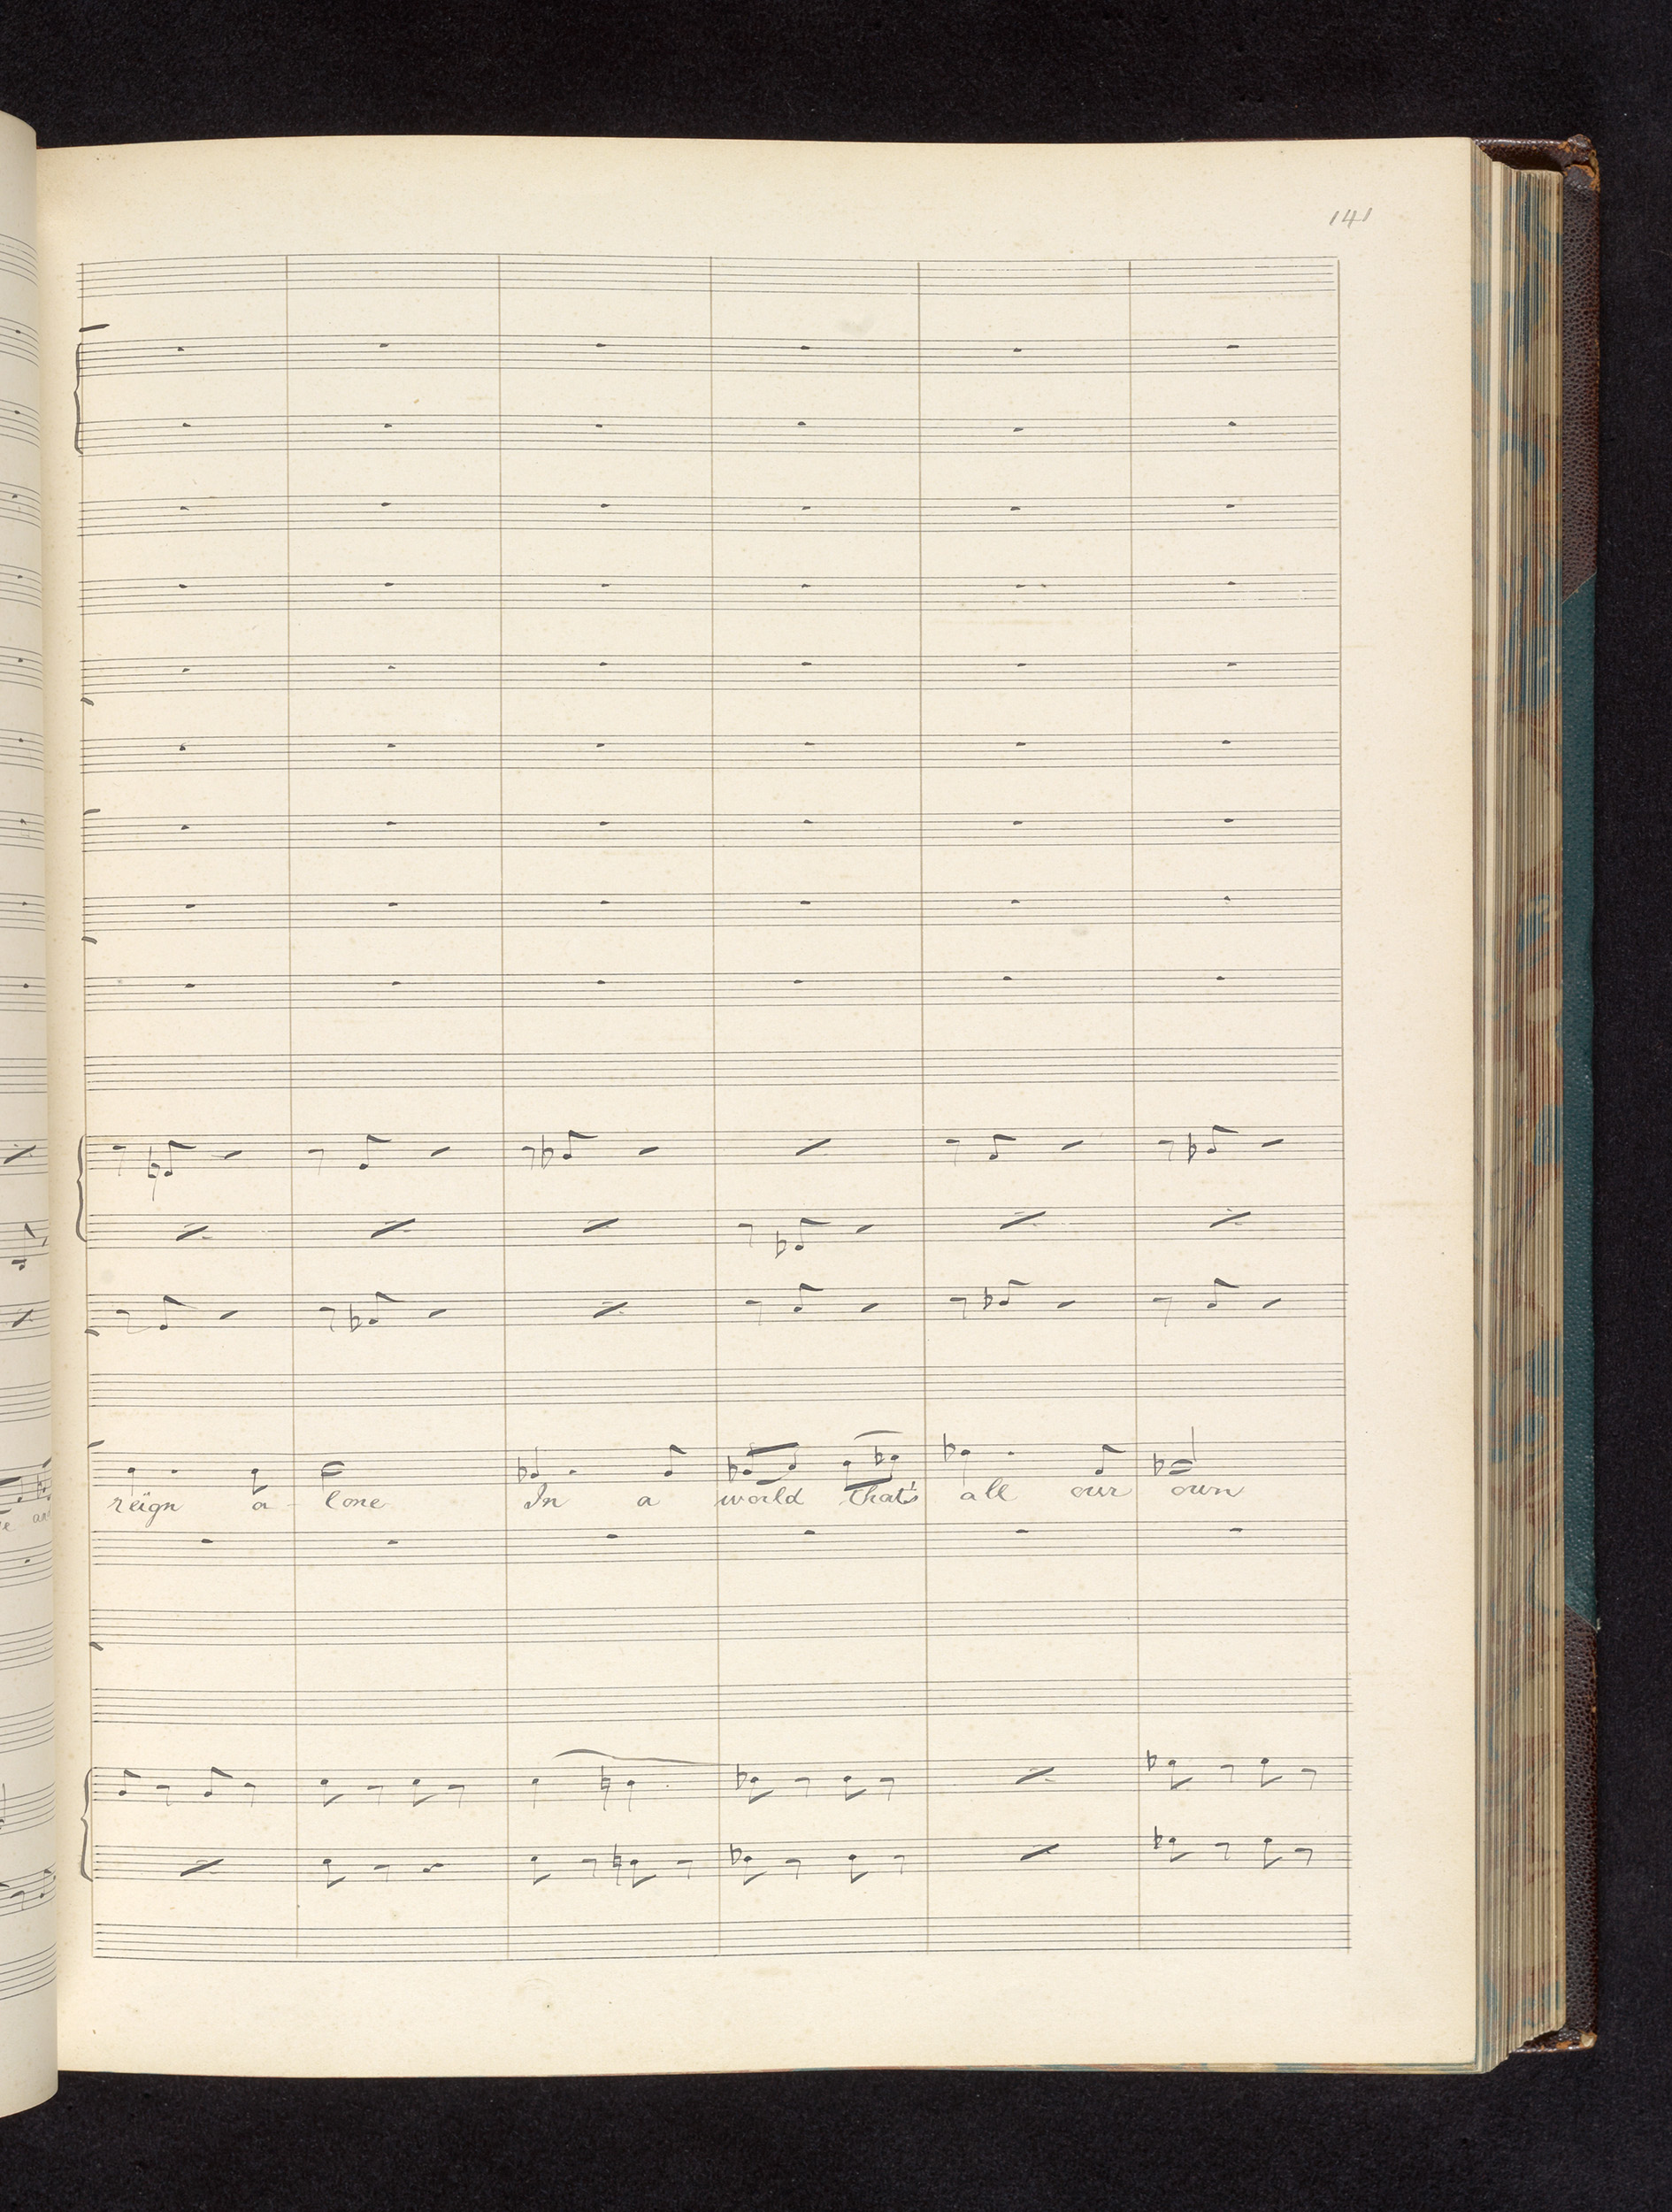 141
reign a - lone In a world that's all our own